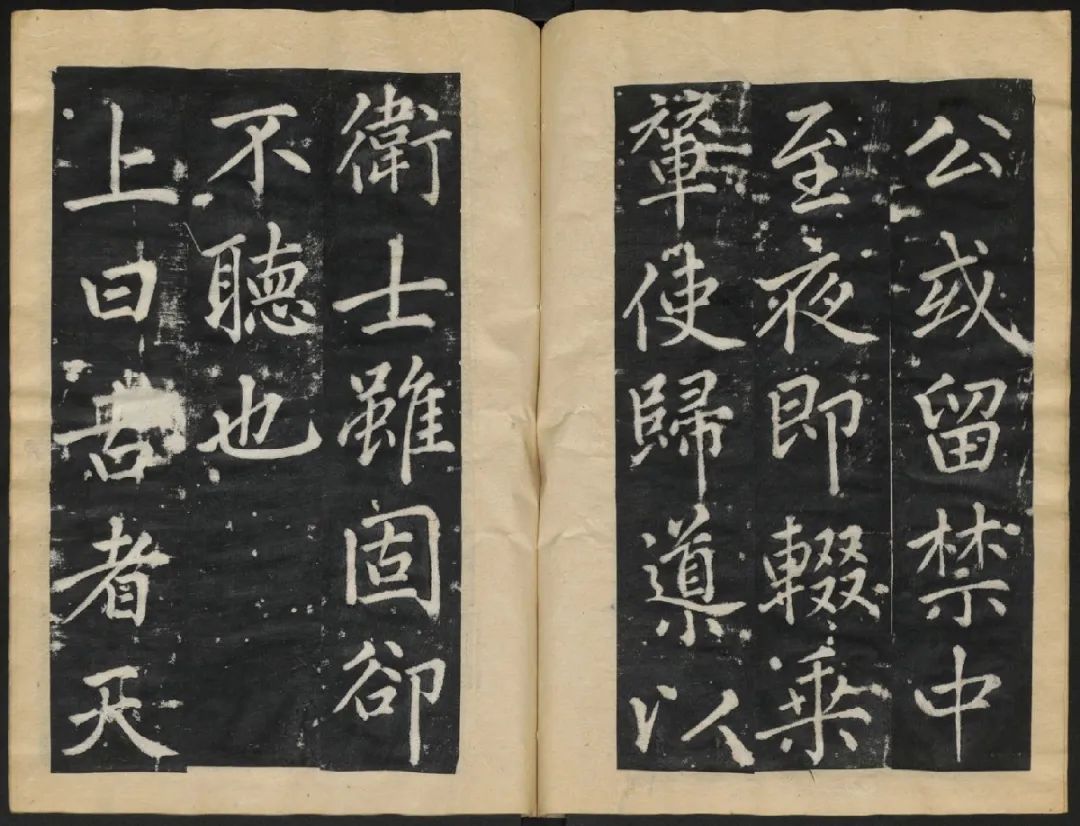 公或留禁中
至夜即輟乘
輦使歸導以
衛士雖固卻
不聽也
上曰者天